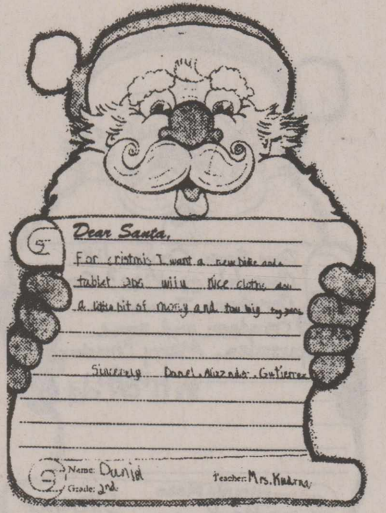 Dear Santa,
For cristmis I want a new bike and a
tablet and nice cloths and
A little bit of mony and two big
Sincerely Daniel. Alexander. Gutierrez
Name: Daniel Teacher: Mrs. Kudrna
Grade: 2nd